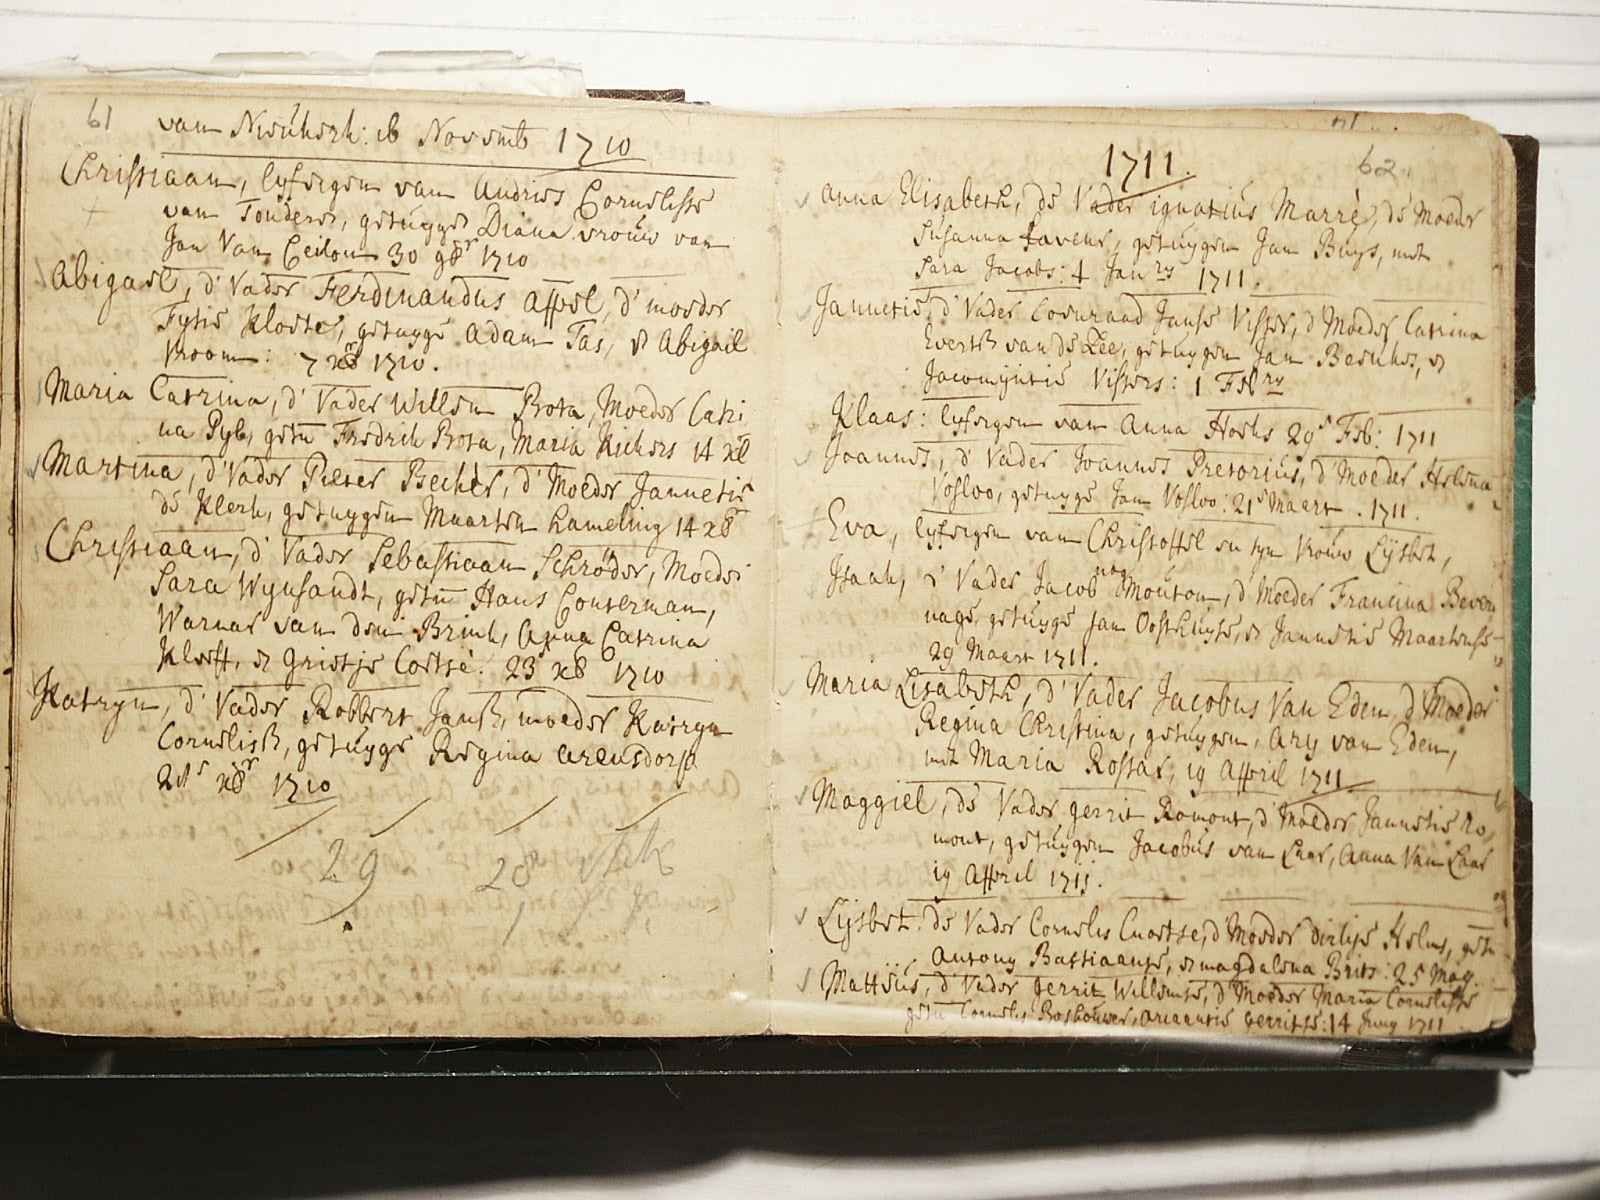 61
van Nieukerk: 16 Novemb 1710
Christiaan, lyfeigen van Andries Cornelisse
van Tonderen, getuyge Diana vrouw van
Jan Van Ceilon 30 9br 1710
Abigael, d' Vader Ferdinandus Appel, d' moeder
Fytie Kloete, getuyge Adam Tas, & Abigail
Vroom: 7 xbr 1710.
Maria Catrina, d' Vader Willem Bota, Moeder Catri
na Pyl, getu Fredrik Bota, Maria Kickers 14 xb
Martina, d' Vader Pieter Becker, d' Moeder Jannetie
de Klerk, getuygen Maarten Lameling 14 xbr
Christiaan, d' Vader Sebastiaan Schröder, Moeder
Sara Wynsandt, getu Hans Conterman,
Warnar van den Brink, Anna Catrina
Kleeff, & Grietje Coetse. 23 xb 1710
Katryn, d' Vader Robbert Jansz, moeder Katryn
Cornelisz, getuyge Regina Arensdorp
xbr 1710
29 28
62
1711.
Anna Elisabeth, de Vader ignatius Marré, de Moeder
Susanna Javens, getuygen Jan Buys, met
Sara Jacobs: 4 Janry 1711.
Jannetie, d' Vader Coenraad Janse Visser, d' Moeder Catrina
Evertsz van de Zee, getuygen Jan Beenkes, &
Jacomyntie Vissers: 1 Febry
Klaas: lyfeigen van Anna Hoeks 29e Feb: 1711
Joannes, d' Vader Joannes Pretorius, d' Moeder Helena
Vosloo, getuyge Jan Vosloo: 21e Maart. 1711.
Eva, lyfeigen van Christoffel en syn vrouw Lysbet,
Isaak, d' Vader Jacob Mouton, d' Moeder Francina Bever
nage, getuyge Jan Oosthuyse, & Jannetie Maartense
29 Maart 1711.
Maria Lisabeth, d' Vader Jacobus Van Eden, d' Moeder
Regina Christina, getuygen, Ary van Eden,
met Maria Rossar, 19 April 1711.
Maggiel, de Vader gerrit Romont, d' Moeder Jannetie Ro
mont, getuygen Jacobus van Laar, Anna Van Laar
19 April 1711.
Lysbet. de Vader Cornelis Cnoetse, d' Moeder Dirkje Helms, getu
Antony Bastiaanse, & magdalena Brits: 25 May
Mattëus, d' Vader Gerrit Willemse, d' Moeder Maria Cornelisse
getu Cornelis Boshouwer, Ariaantie Gerritse: 14 Juny 1711